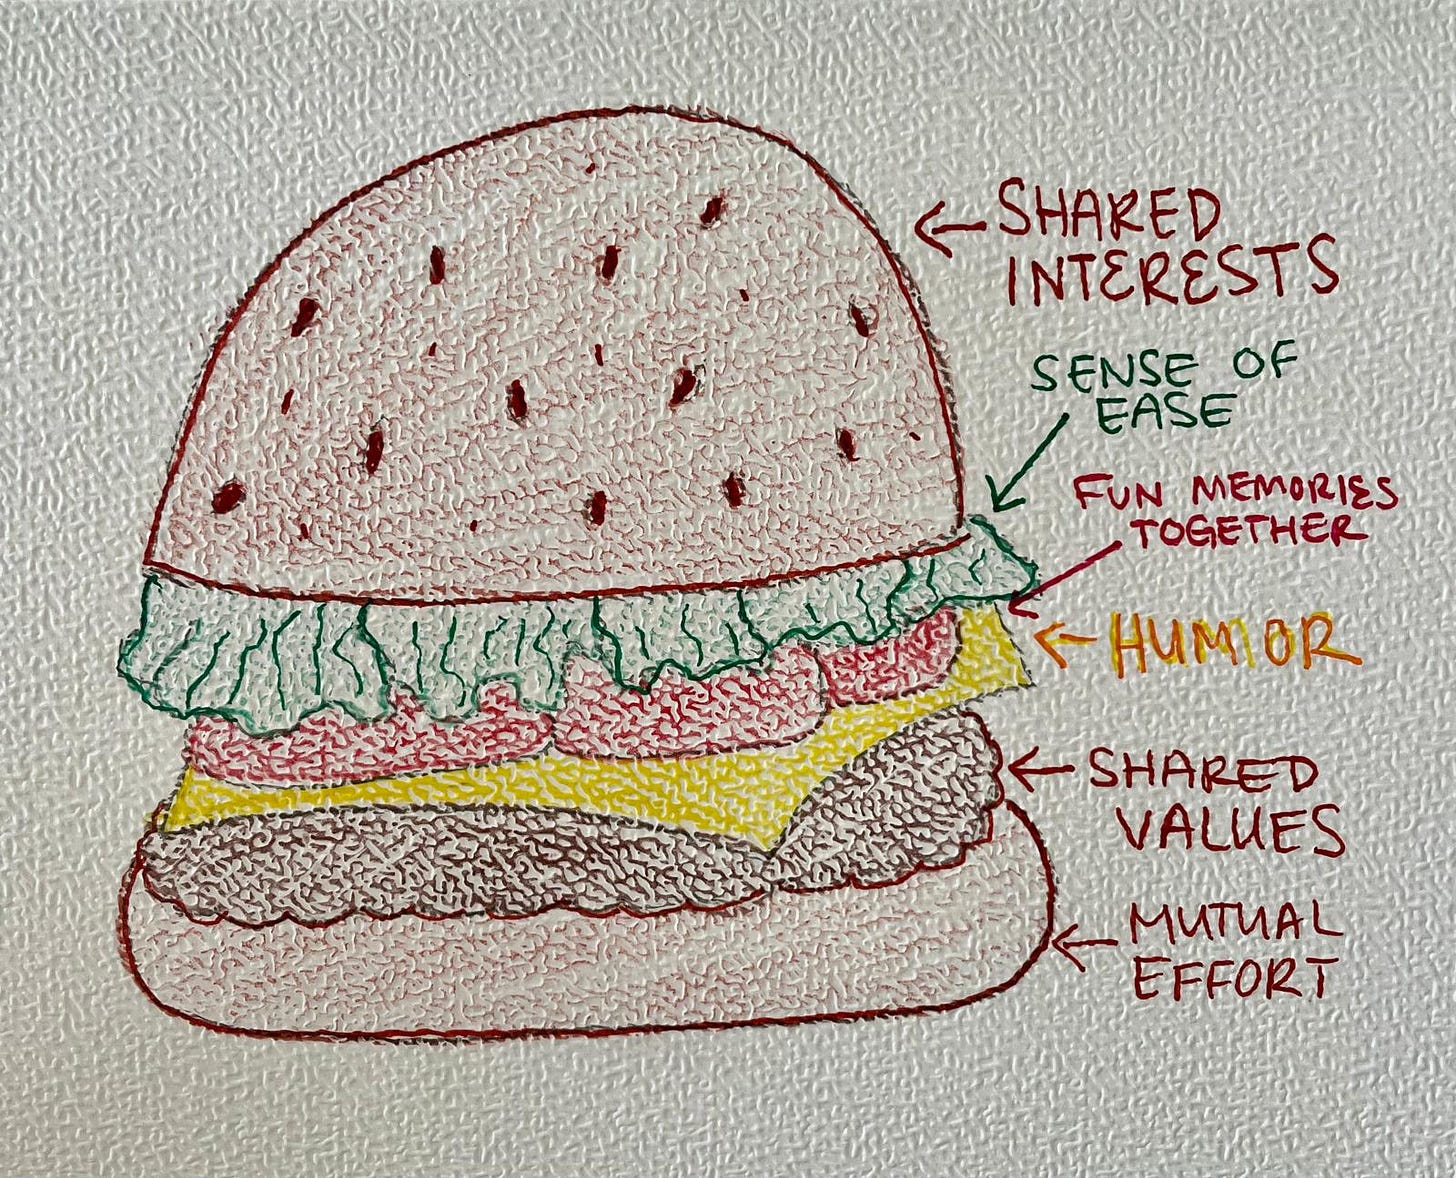 SHARED
INTERESTS
SENSE OF
EASE
FUN MEMORIES
TOGETHER
HUMOR
SHARED
VALUES
MUTUAL
EFFORT